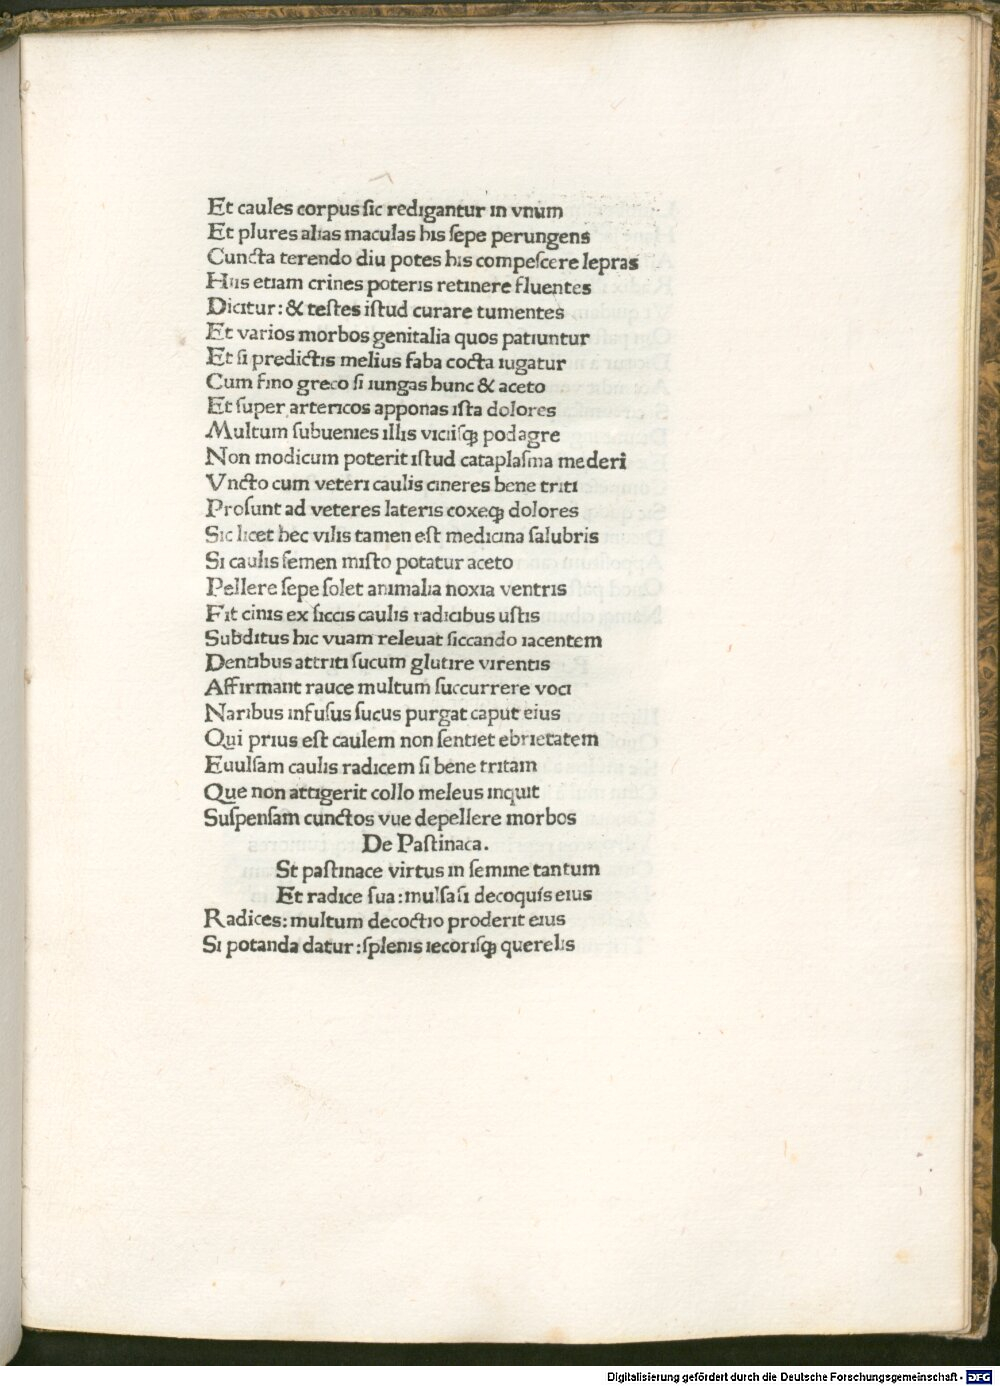 Et caules corpus sic redigantur in vnum
Et plures alias maculas his sepe perungens
Cuncta terendo diu potes his compescere lepras
Hiis etiam crines poteris retinere fluentes
Dicitur: & testes istud curare tumentes
Et varios morbos genitalia quos patiuntur
Et si predictis melius faba cocta iugatur
Cum fino greco si iungas hunc & aceto
Et super artericos apponas ista dolores
Multum subuenies illis viciisꝗ podagre
Non modicum poterit istud cataplasma mederi
Vncto cum veteri caulis cineres bene triti
Prosunt ad veteres lateris coxeꝗ dolores
Sic licet hec vilis tamen est medicina salubris
Si caulis semen misto potatur aceto
Pellere sepe solet animalia noxia ventris
Fit cinis ex siccis caulis radicibus ustis
Subditus hic vuam releuat siccando iacentem
Dentibus attriti sucum glutire virentis
Affirmant rauce multum succurrere voci
Naribus infusus sucus purgat caput eius
Qui prius est caulem non sentiet ebrietatem
Euulsam caulis radicem si bene tritam
Que non attigerit collo meleus inquit
Suspensam cunctos vue depellere morbos
De Pastinaca.
St pastinace virtus in semine tantum
Et radice sua: mulsa si decoquis eius
Radices: multum decoctio proderit eius
Si potanda datur: splenis iecorisꝗ querelis
Digitalisierung gefördert durch die Deutsche Forschungsgemeinschaft - DFG